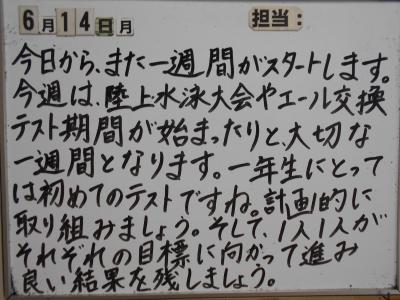 6月14日月 担当:
今日から、また一週間がスタートします。
今週は、陸上水泳大会やエール交換
テスト期間が始まったりと、大切な
一週間となります。一年生にとって
は初めてのテストですね。計画的に
取り組みましょう。そして、1人1人が
それぞれの目標に向かって進み
良い結果を残しましょう。